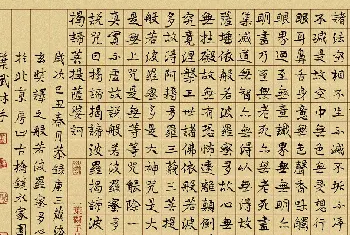 諸法空相不生不滅不垢不淨
不減是故空中無色無受想行
眼耳鼻舌身意無色聲香味觸
眼界乃至無意識界無無明亦
明盡乃至無老死亦無老死盡
集滅道無智亦無得以無所得
薩埵依般若波羅蜜多故心無
無罣礙故無有恐怖遠離顛倒
究竟涅槃三世諸佛依般若波
多故得阿耨多羅三藐三菩提
般若波羅蜜多是大神咒是大
是無上咒是無等等咒能除一
真實不虛故說般若波羅蜜多
說咒曰揭諦揭諦波羅揭諦波
揭諦菩提薩婆訶
歲次己丑春月恭錄唐三藏法
玄奘譯之般若波羅蜜多心
於北京房山古橋鎮水家園